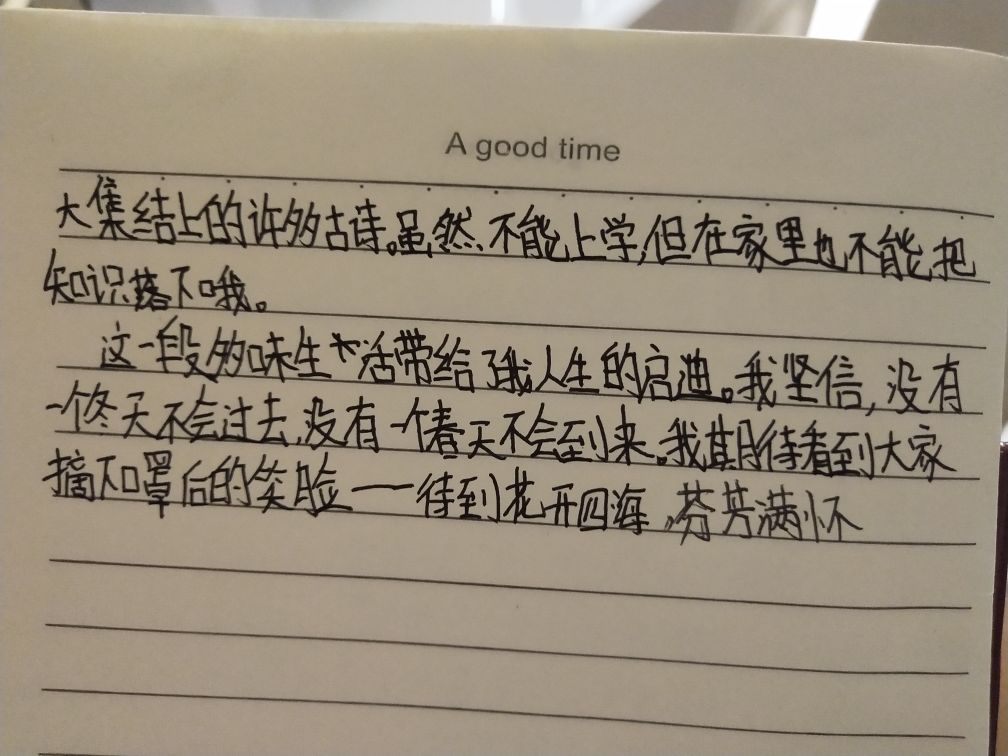 A good time
大集结上的许多古诗。虽然、不能上学,但在家里也不能把
知识落下哦。
这一段多味生活带给了我人生的启迪。我坚信,没有
一个冬天不会过去,没有一个春天不会到来。我期待看到大家
摘下口罩后的笑脸——待到花开四海,芬芳满怀